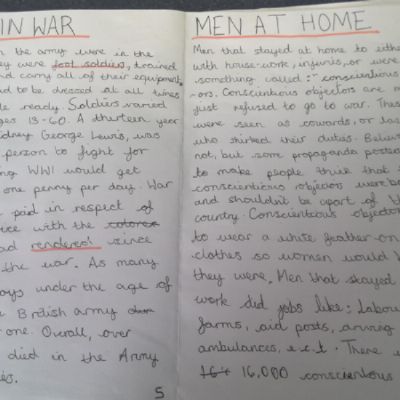 IN WAR
the army were in the
were foot soldiers, trained
and carry all of their equipment,
to be dressed at all times
ready. Soldiers varied
ages 13-60. A thirteen year
Sidney George Lewis, was
person to fight for
WWI would get
one penny per day. War
paid in respect of
with the
rendered since
the war. As many
boys under the age of
British army
one. Overall, over
died in the Army
5
MEN AT HOME
Men that stayed at home to either
with house-work, injuries, or were
something called :- conscientious
-ors. Conscientious objectors are m
just refused to go to war. These
were seen as cowards, or las
who shirked their duties. Believe
not, but some propaganda posters
to make people think that t
conscientious objectors were b
and shouldn't be apart of th
country. Conscientious objector
to wear a white feather on
clothes so women would k
they were. Men that stayed
work did jobs like: Labou
farms, aid posts, driving
ambulances, e.c.t. There w
16 16,000 conscientious